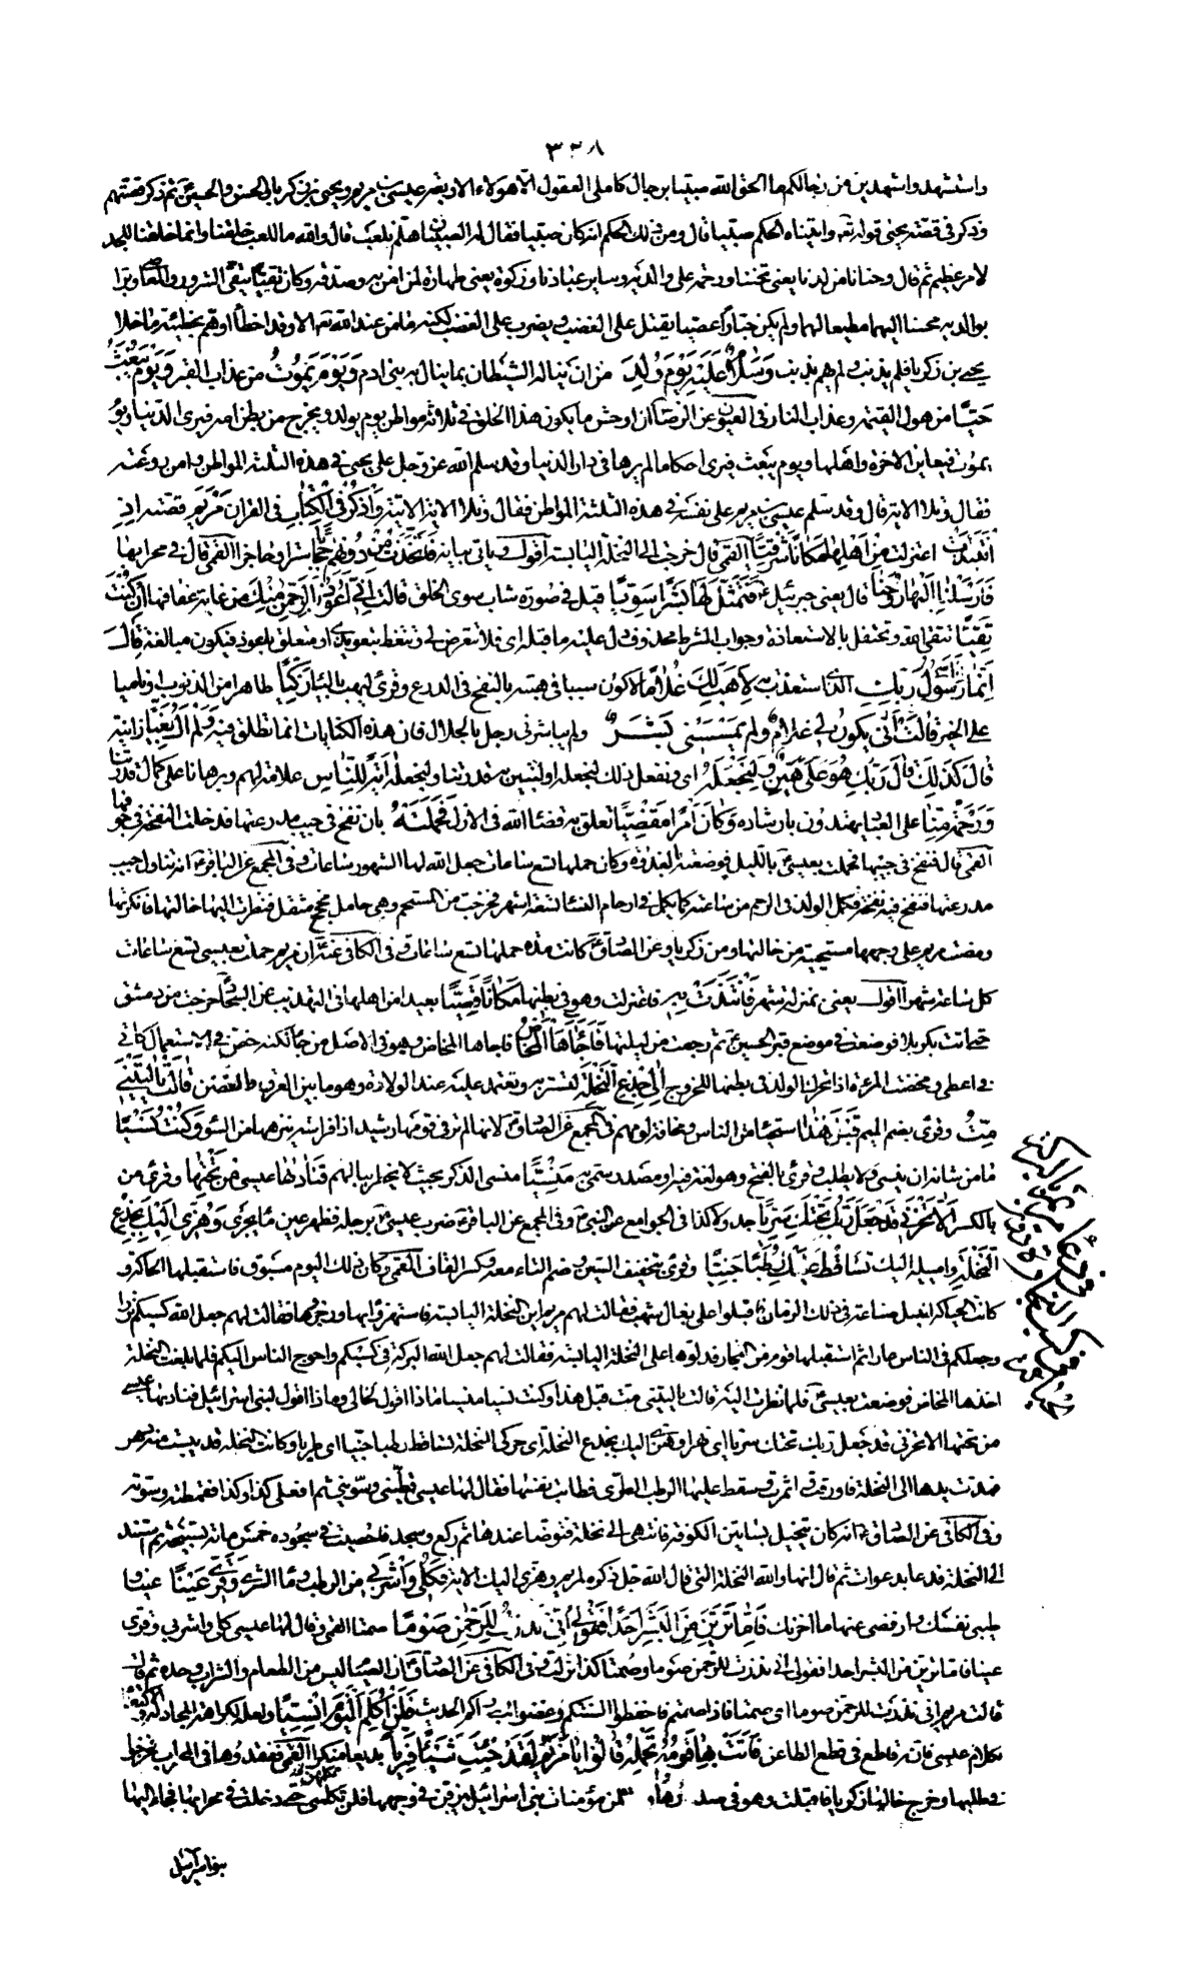 ٣٣٨
واستشهد واستشهدين من رجالكم ها الحق الله صبيّا برجال كاملى العقول الّا هؤلاء الاربعة عيسى بن مريم ويحيى بن زكريا والحسن والحسين ثم ذكر قصّتهم
وذكر فى قصّة يحيى قوله تعالى وآتيناه الحكم صبيّا قال ومن ذلك الحكم انه كان صبيّا فقال له الصبيان هلمّ نلعب قال والله ما للعب خلقنا وانما خلقنا للجد
لامر عظيم ثم قال وحنانا من لدنا يعنى تحننا ورحمة على والديه وسائر عبادنا وزكوة يعنى طهارة لمن امن به وصدقه وكان تقيّا يتقى الشرور والمعاصى وبرا
بوالديه محسنا اليهما مطيعا لهما ولم يكن جبّارا عصيّا يقتل على الغضب ويضرب على الغضب لكنه ما من عند الله تعالى الا وقد اخطأ او همّ بخطيئة ما خلا
يحيى بن زكريا فلم يذنب ولم يهم بذنب وَسَلَامٌ عَلَيْهِ يَوْمَ وُلِدَ من ان يناله الشيطان بما ينال به بنى ادم وَيَوْمَ يَمُوتُ من عذاب القبر وَيَوْمَ يُبْعَثُ
حَيًّا من هول القيمة وعذاب النار فى العيون عن الرضا ان اوحش ما يكون هذا الخلق فى ثلاثة مواطن يوم يولد ويخرج من بطن امه فيرى الدنيا ويوم
يموت فيعاين الاخرة واهلها ويوم يبعث فيرى احكاما لم يرها فى دار الدنيا وقد سلم الله عز وجل على يحيى فى هذه الثلثة المواطن وامن روعته
فقال وتلا الاية قال وقد سلم عيسى بن مريم على نفسه فى هذه الثلثة المواطن فقال وتلا الاية الاتية وَاذْكُرْ فِى الْكِتَابِ فى القران مَرْيَمَ قصته اِذِ
انْتَبَذَتْ اعتزلت مِنْ اَهْلِهَا مَكَانًا شَرْقِيًّا القمى قال خرجت الى النخلة اليابسة اقول وياتى بيانه فَاتَّخَذَتْ مِنْ دُونِهِمْ حِجَابًا سترا وحاجزا القمى قال فى محرابها
فَاَرْسَلْنَا اِلَيْهَا رُوحَنَا قال يعنى جبرئيل ع فَتَمَثَّلَ لَهَا بَشَرًا سَوِيًّا قيل فى صورة شاب سوى الخلق قالت اِنِّى اَعُوذُ بِالرَّحْمٰنِ مِنْكَ من غاية عفافها اِنْ كُنْتَ
تَقِيًّا تتقى الله وتحتفل بالاستعاذة وجواب الشرط محذوف دل عليه ما قبله اى فلا تتعرض لى وتتعظ بتعويذى او متعلق باعوذ فيكون مبالغة قَالَ
اِنَّمَا اَنَا رَسُولُ رَبِّكِ الذى استعذت به لِاَهَبَ لَكِ غُلَامًا لاكون سببا فى هبته بالنفخ فى الدرع وقرئ ليهب بالياء زَكِيًّا طاهرا من الذنوب او ناميا
على الخير قَالَتْ اَنّٰى يَكُونُ لِى غُلَامٌ وَلَمْ يَمْسَسْنِى بَشَرٌ ولم يباشرنى رجل بالحلال فان هذه الكنايات انما تطلق فيه وَلَمْ اَكُ بَغِيًّا زانية
قَالَ كَذٰلِكِ قَالَ رَبُّكِ هُوَ عَلَىَّ هَيِّنٌ وَلِنَجْعَلَهُ اى ونفعل ذلك لنجعله او لنبين به قدرتنا ولنجعله اٰيَةً لِلنَّاسِ علامة لهم وبرهانا على كمال قدرتنا
وَرَحْمَةً مِنَّا على العباد يهتدون بارشاده وَكَانَ اَمْرًا مَقْضِيًّا تعلق به قضاء الله فى الازل فَحَمَلَتْهُ بان نفخ فى جيب مدرعتها فدخلت النفخة فى جوفها
القمى قال فنفخ فى جيبها فحملت بعيسى ع بالليل فوضعته بالغداة وكان حملها تسع ساعات جعل الله لها الشهور ساعات وفى المجمع عن الباقر ع انه تناول جيب
مدرعتها فنفخ فيه نفخة فكمل الولد فى الرحم من ساعته كما يكمل فى ارحام النساء تسعة اشهر فخرجت من المستحم وهى حامل مجح مثقل فنظرت اليها خالتها فانكرتها
ومضت مريم على وجهها مستحيية من خالتها ومن زكريا وعن الصادق ع كانت مدة حملها تسع ساعات وفى الكافى عنه ع ان مريم حملت بعيسى تسع ساعات
كل ساعة شهرا اقول يعنى بمنزلة شهر فَانْتَبَذَتْ بِهِ فاعتزلت وهو فى بطنها مَكَانًا قَصِيًّا بعيدا من اهلها فى التهذيب عن السجاد ع خرجت من دمشق
حتى اتت كربلا فوضعت فى موضع قبر الحسين ع ثم رجعت من ليلتها فَاَجَاءَهَا الْمَخَاضُ فاجاءها المخاض وهو فى الاصل من جاء لكنه خصّ فى الاستعمال كاتى
فى اعطى ومخضت المرءة اذا تحرك الولد فى بطنها للخروج اِلٰى جِذْعِ النَّخْلَةِ لتستتر به وتعتمد عليه عند الولادة وهو ما بين العرق والغصن قَالَتْ يَا لَيْتَنِى
مِتُّ وقرئ بضم الميم قَبْلَ هٰذَا استحياء من الناس ومخافة لومهم فى المجمع عن الصادق ع لانها لم تر فى قومها رشيدا ذا فراسة ينزهها من السوء وَكُنْتُ نَسْيًا
ما من شانه ان ينسى ولا يطلب وقرئ بالفتح وهو لغة فيه او مصدر سمى به مَنْسِيًّا منسى الذكر بحيث لا يخطر ببالهم فَنَادٰيهَا عيسى مِنْ تَحْتِهَا وقرئ من
بالكسر اَلَّا تَحْزَنِى قَدْ جَعَلَ رَبُّكِ تَحْتَكِ سَرِيًّا جدولا كذا فى الجوامع عن النبى ص وفى المجمع عن الباقر ع ضرب عيسى ع برجله فظهر عين ماء يجرى وَهُزِّى اِلَيْكِ بِجِذْعِ
النَّخْلَةِ واميليه اليك تُسَاقِطْ عَلَيْكِ رُطَبًا جَنِيًّا وقرئ بتخفيف السين وضم التاء معه وكسر القاف القمى وكان ذلك اليوم مسوق فاستقبلها الحاكة و
كانت الحياكة انبل صناعة فى ذلك الزمان فاقبلوا على بغال شهب فقالت لهم مريم اين النخلة اليابسة فاستهزؤا بها وزجروها فقالت لهم جعل الله كسبكم نزرا
وجعلكم فى الناس عارا ثم استقبلها قوم من التجار فدلّوها على النخلة اليابسة فقالت لهم جعل الله البركة فى كسبكم واحوج الناس اليكم فلما بلغت النخلة
اخذها المخاض فوضعت بعيسى ع فلما نظرت اليه قالت يا ليتنى مت قبل هذا وكنت نسيا منسيا ماذا اقول لخالى وماذا اقول لبنى اسرائيل فناداها عيسى
من تحتها الا تحزنى قد جعل ربك تحتك سريا اى نهرا وهزى اليك بجذع النخلة اى حركى النخلة تساقط عليك رطبا جنيا اى طريا وكانت النخلة قد يبست منذ دهر
فمدت يدها الى النخلة فاورقت واثمرت وسقط عليها الرطب الطرى فطابت نفسها فقال لها عيسى قمّطينى وسوّينى ثم افعلى كذا وكذا فقمطته وسوته
وفى الكافى عن الصادق ع انه كان يتخلل بساتين الكوفة فانتهى الى نخلة فتوضا عندها ثم ركع وسجد فاحصيت فى سجوده خمس مائة تسبيحة ثم استند
الى النخلة فدعا بدعوات ثم قال انها والله النخلة التى قال الله جل ذكره لمريم وهزى اليك الاية فَكُلِى وَاشْرَبِى من الرطب وماء السرى وَقَرِّى عَيْنًا
طيبى نفسك وارفضى عنها ما احزنك فَاِمَّا تَرَيِنَّ مِنَ الْبَشَرِ اَحَدًا فَقُولِى اِنِّى نَذَرْتُ لِلرَّحْمٰنِ صَوْمًا صمتا القمى وقال لها عيسى كلى واشربى وقرى
عينا فاما ترين من البشر احدا فقولى انى نذرت للرحمن صوما وصمتا كذا نزلت وفى الكافى عن الصادق ع ان الصيام ليس من الطعام والشراب وحده ثم قال
قالت مريم انى نذرت للرحمن صوما اى صمتا فاذا صمتم فاحفظوا السنتكم وغضوا ابصاركم الحديث فَلَنْ اُكَلِّمَ الْيَوْمَ اِنْسِيًّا ولعله لكراهة المجادلة والاكتفاء
بكلام عيسى فانه قاطع فى قطع الطاعن فَاَتَتْ بِهِ قَوْمَهَا تَحْمِلُهُ قَالُوا يَا مَرْيَمُ لَقَدْ جِئْتِ شَيْئًا فَرِيًّا بديعا منكرا القمى ففقدوها فى المحراب فخرجوا
فى طلبها وخرج خالها زكريا فاقبلت وهو فى صدرها مؤمنات بنى اسرائيل يبزقن فى وجهها فلم تكلمهن حتى دخلت فى محرابها فجاء اليها
بنو اسرائيل